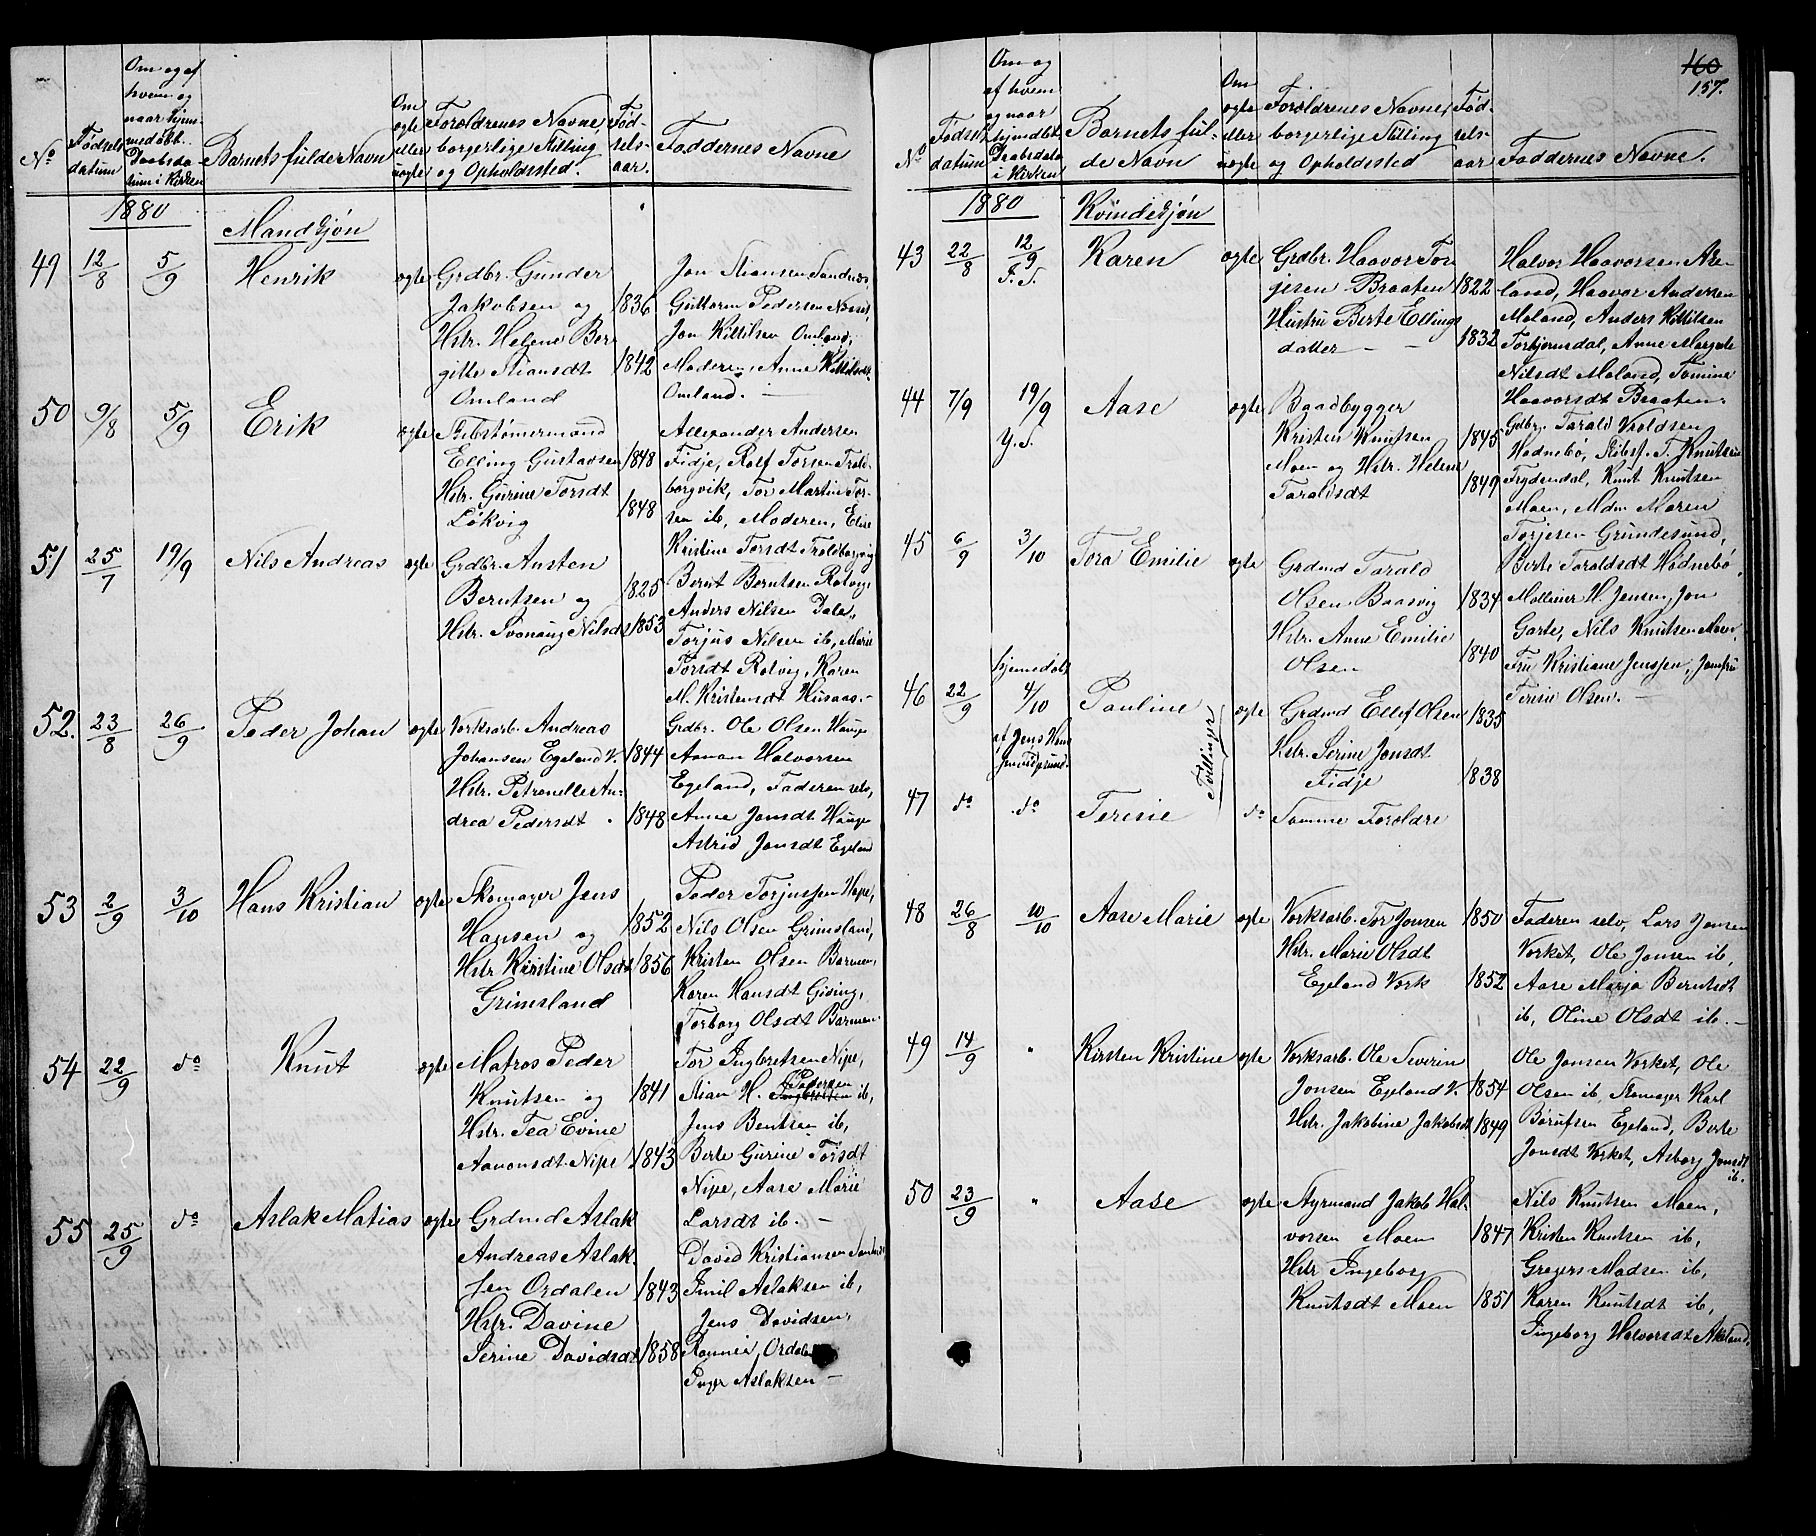 No
Fødsels
datum
Om og af
hvem og
naar hjem-
medøbt.
Daabsda-
tum i Kirken
Barnets fulde Navn
Om
ægte
eller
uægte
Forældrenes Navne,
borgerlige Stilling
og Opholdssted.
Fød-
sels-
aar.
Faddernes Navne
1880
Mandkjøn
49
12/8
5/9
Henrik
ægte
Grdbr. Gunder
Jakobsen og
Hstr. Helene Ber-
gitte Stiansdt
Omland
1836
1842
Jon Stiansen Sandnes,
Guttorm Pedersen Næset,
Jon Kittilsen Omland,
Moderen, Anne Kittilsdt
Omland. —
50
9/8
5/9
Erik
ægte
Skibstømermand
Elling Gustavsen
Hstr. Gurine Torsdt
Løkvig
1848
1848
Allexander Andersen
Fidje, Rolf Torsen Trold-
borgvik, Tor Martin Tor-
sen ib, Moderen, Elise
Kristine Torsdt Troldborgvig
51
25/7
19/9
Nils Andreas
ægte
Grdbr. Austen
Berntsen og
Hstr. Svonaug Nilsdt
1825
1853
Bernt Berntsen Rolvig,
Anders Nilsen Dale,
Torjus Nilsen ib, Marie
Torsdt Rolvig, Karen
M. Kristensdt Husaas.-
52.
23/8
26/9
Peder Johan
ægte
Værksarb. Andreas
Johansen Egeland V.
Hstr. Petronelle An-
drea Pedersdt
1844
1848
Grdbr. Ole Olsen Hauge
Aanon Halvorsen
Egeland, Faderen selv,
Anne Jonsdt Hauge
Astrid Jonsdt Egeland
53
2/9
3/10
Hans Kristian
ægte
Skomager Jens
Hansen og
Hstr Kristine Olsdt
Grimsland
1852
1856
Peder Torjussen Hope,
Nils Olsen Grimsland,
Kristen Olsen Barmen,
Karen Hansdt Giving,
Torborg Olsdt Barmen.
54
22/9
do
Knut
ægte
Matros Peder
Knutsen og
Hstr. Tea Evine
Aanonsdt Nipe
1841
1843
Tor Ingbretsen Nipe,
Pedersen
Stian H. Ingbretsen ib,
Jens Bentsen ib,
Berte Gurine Torsdt
Nipe, Aase Marie
Larsdt ib. —
55
25/9
do
Aslak Matias
ægte
Grdmd Aslak
Andreas Aslak-
sen Ordalen
Hstr. Davine
Serine Davidsdt
1843
1858
David Kristiansen Sandnes
Emil Aslaksen ib,
Jens Davidsen,
Ordalen
Inger Aslaksen —
160
157.
No
Fødsels
datum
Om og
af hvem
og naar
hjemdøbt
Daabsdatum
i Kirken
Barnets ful-
de Navn
Om
ægte
eller
uægte
Forældrenes Navne,
borgerlige Stilling
og Opholdssted
Fød-
sels-
aar
Faddernes Navne.
1880
Kvindekjøn
43
22/8
12/9
I. S.
Karen
ægte
Grdbr. Haavor Tor-
jesen Braaten
Hustru Berte Ellings-
datter — -
1822
1832
Halvor Haavorsen Ake-
land, Haavor Andersen
Moland, Anders Kittilsen
Torbjørnsdal, Anne Margrete
Nilsdt Moland, Tomine
Haavorsdt Braaten.
44
7/9
19/9
Y. S.
Aase
ægte
Baadbygger
Kristen Knutsen
Moen og Hstr. Helene
Taraldsdt
1845
1849
Gdbr. Tarald Kroldsen
Hødnebø, Skibsf. T. Knutsen
Frydendal, Knut Knutsen
Moen, Mdm Maren
Torjesen Grundesund,
Berte Taraldsdt Hødnebø,
45
6/9
3/10
Tora Emilie
ægte
Grdmd Tarald
Olsen Baasvig
Hstr. Anne Emilie
Olsen
1834
1840
Møllerier H. Jensen, Jon
Garte, Nils Knutsen Moen,
Fru Kristiane Jenssen, Jomfru
Teresie Olsen. —
46
22/9
hjemmedøbt
4/10
af Jens Han-
Pauline
Tvillinger
ægte
Grdmd Ellef Olsen
Hstr. Serine Jonsdt
Fidje
1835
1838
47
do
do
Teresie
do
Samme Forældre
48
26/8
10/10
Aase Marie
ægte
Værksarb. Tor Jonsen
Hstr. Marie Olsdt
Egeland Værk
1850
1852
Faderen selv, Lars Jonsen
Værket, Ole Jonsen ib,
Aase Marja Berntsdt
ib, Oline Olsdt ib. —
49
14/9
"
Kirsten Kristine
ægte
Værksarb. Ole Severin
Jonsen Egeland V.
Hstr. Jakobine Jakobsdt
1854
1849
Ole Jonsen Værket, Ole
Olsen ib, Skomager Karl
Børufsen Egeland, Berte
Jonsdt Værket, Asborg Jonsdt
ib.
50
23/9
"
Aase
ægte
Styrmand Jakob Hal-
vorsen Moen
Hstr Ingeborg
Knutsdt Moen
1847
1851
Nils Knutsen Moen,
Kristen Knutsen ib,
Gregers Madsen ib,
Karen Knutsdt ib,
Ingeborg Halvorsdt Akeland.